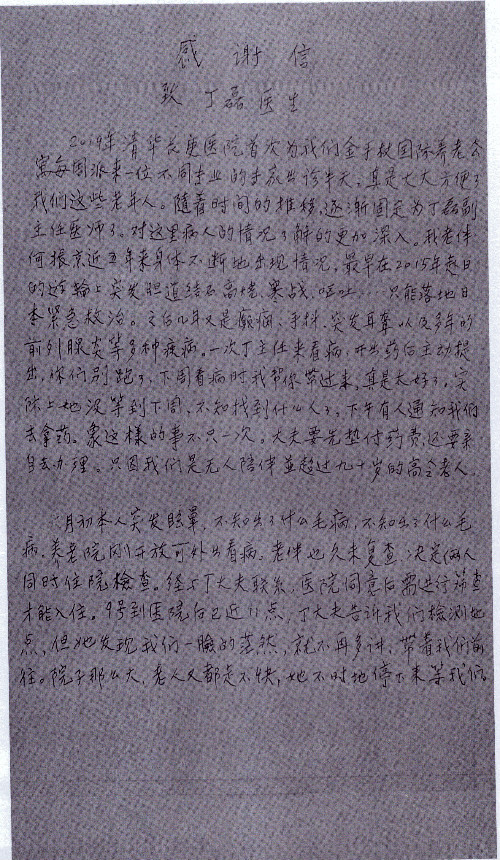 感谢信
致丁磊医生
2019年清华长庚医院首次为我们金手杖国际养老公
寓每周派来一位不同专业的大夫出诊半天，真是大大方便了
我们这些老年人。随着时间的推移，逐渐固定为丁磊副
主任医师了。对这里病人的情况了解的更加深入。我老伴
何振京近五年来身体不断地出现情况。最早在2015年赴日
的邮轮上突发胆道结石高烧、寒战、呕吐……只能落地日
本紧急救治。之后几年又是癫痫、手抖、突发耳聋以及多年的
前列腺炎等多种疾病。一次丁主任来看病，开出药后主动提
出，你们别跑了，下周看病时我帮你带过来，真是太好了。实
际上她没等到下周，不知找到什么人了，下午有人通知我们
去拿药。象这様的事不只一次。大夫要先垫付药费，还要亲
自去办理。只因我们是无人陪伴並超过九十岁的高令老人。
月初本人突发眩晕，不知出了什么毛病，不知出了什么毛
病，养老院刚开放可外出看病，老伴也久未复查，决定俩人
同时住院檢查。经与丁大夫联系，医院同意后需进行筛查
才能入住。9号到医院后已近11点，丁大夫告诉我们检测地
点，但她发现我们一臉的茫然，就不再多讲，带着我们前
往。院子那么大，老人又都走不快，她不时地停下来等我们，